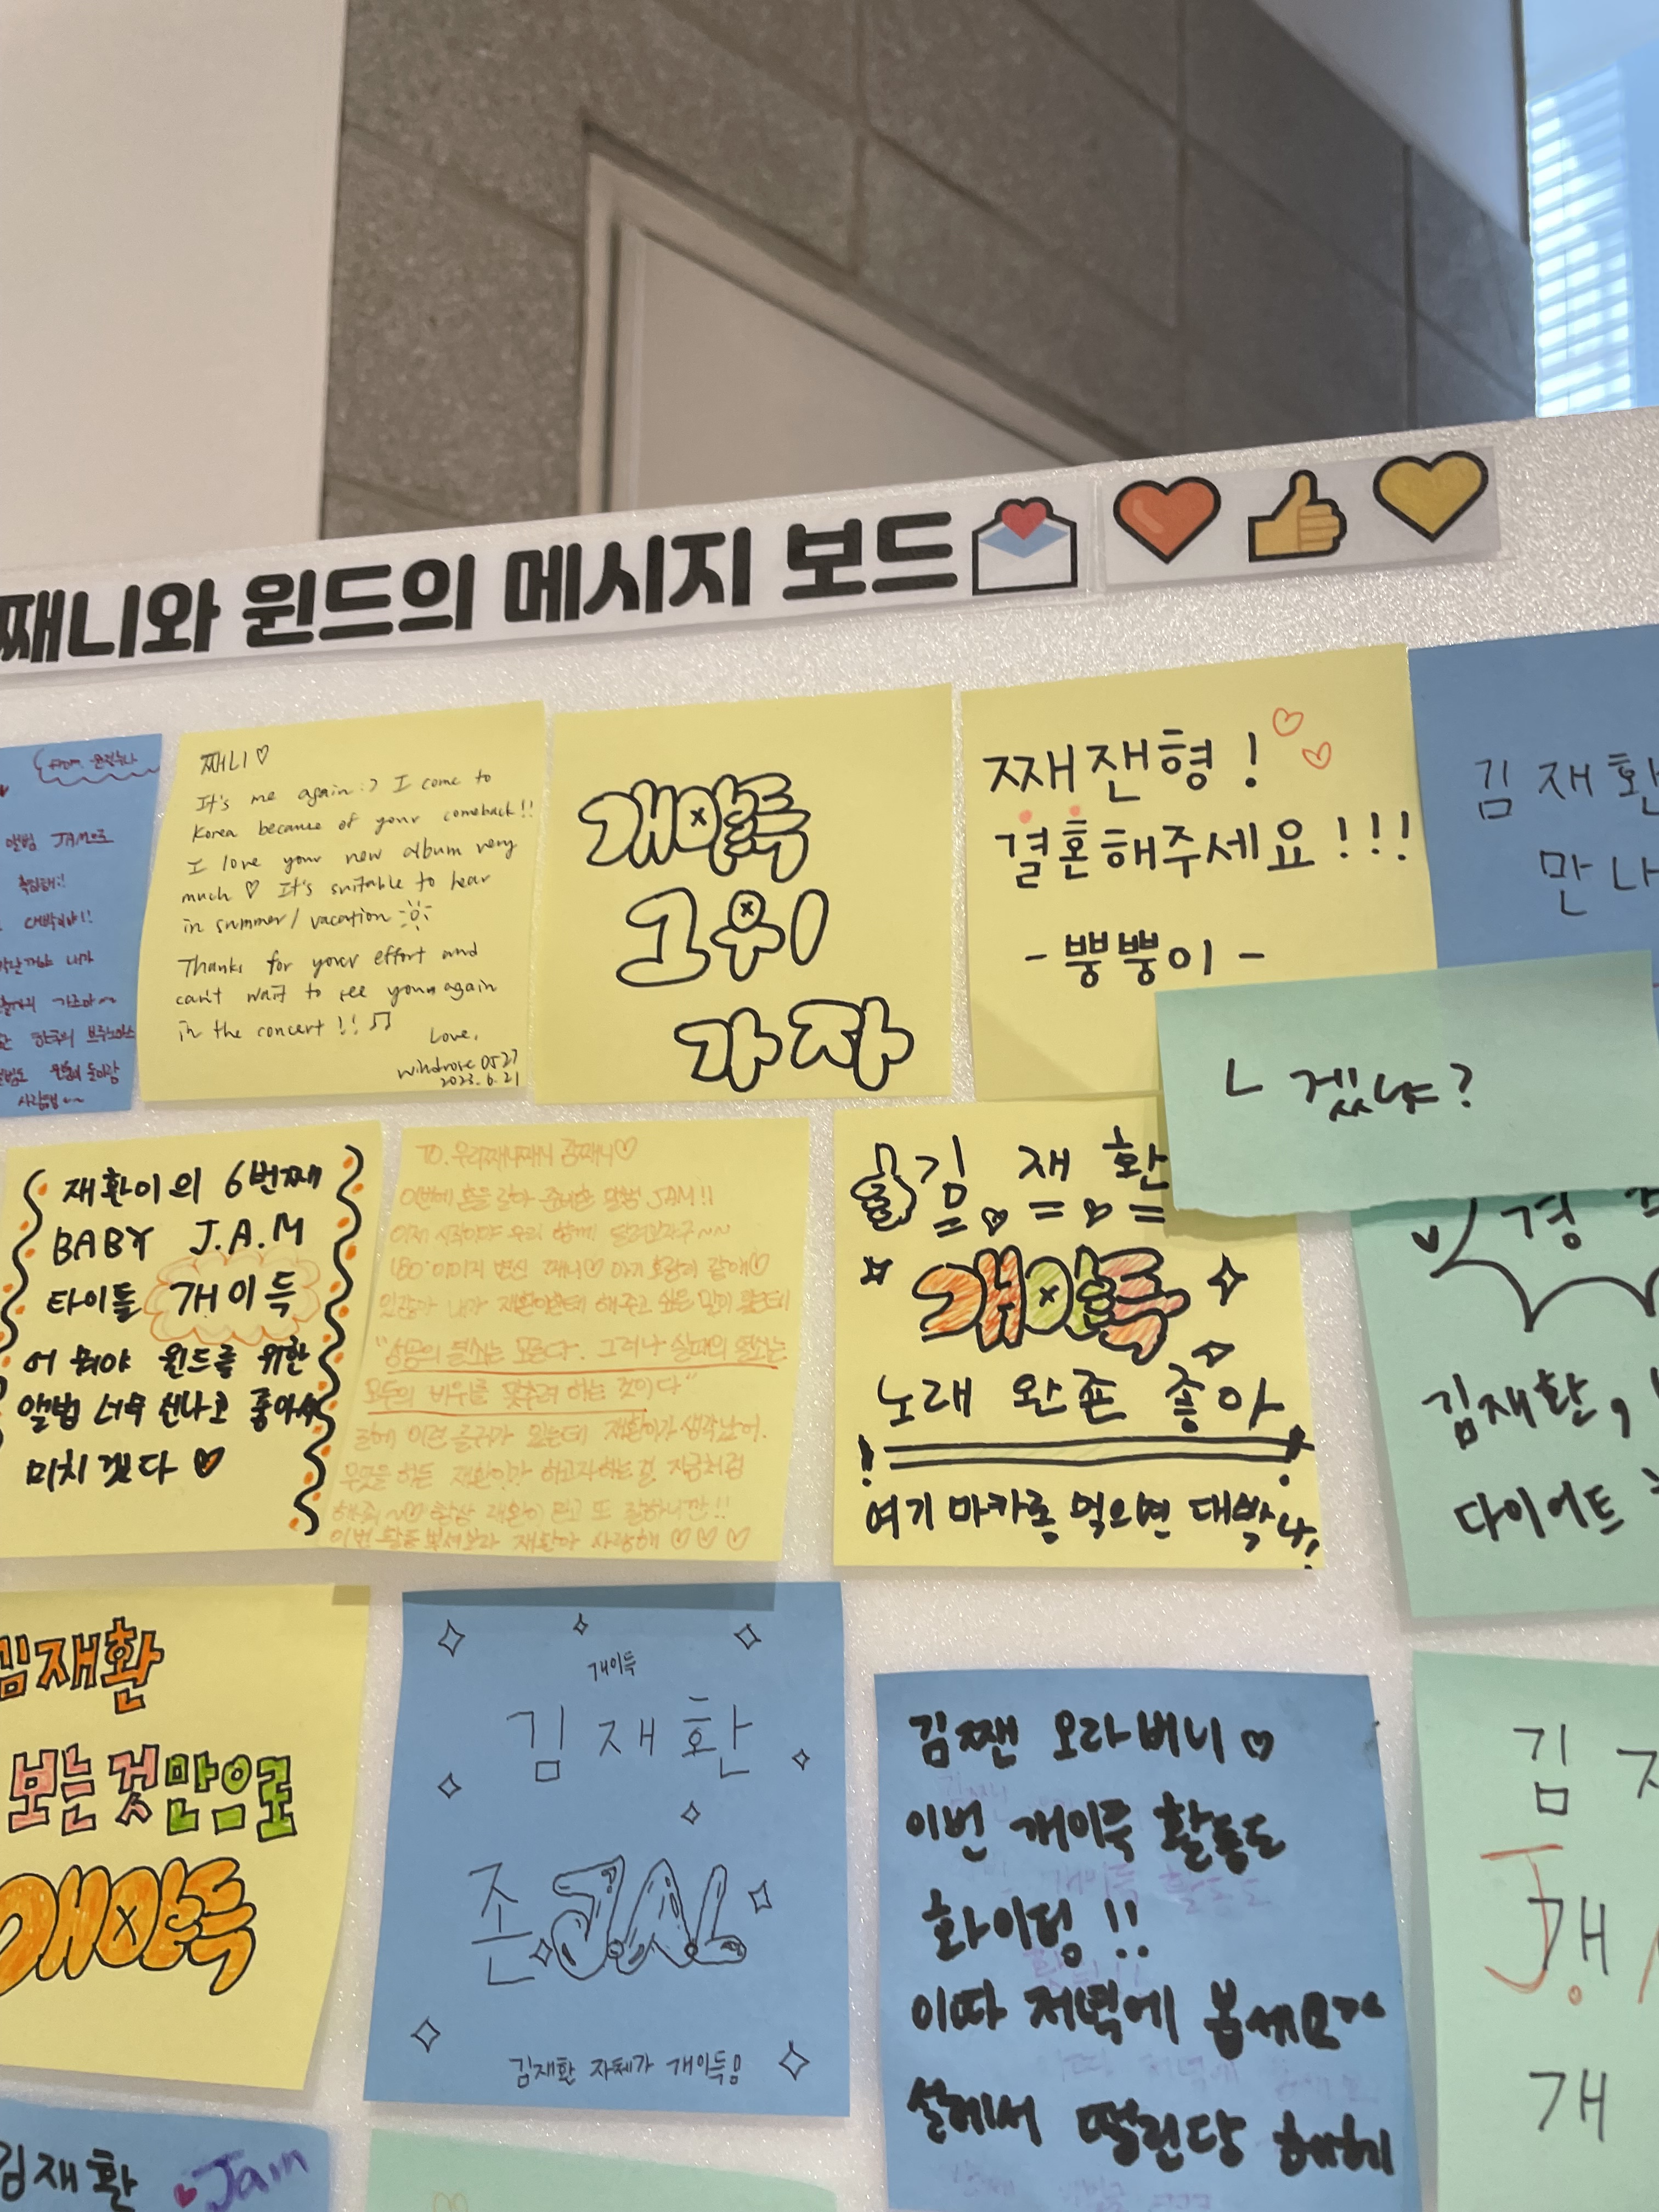 째니와 윈드의 메시지 보드
앨범 JAM으로
째니♡
It's me again :) I come to
Korea because of your comeback!!
I love your new album very
much ♡ It's suitable to hear
in summer/ vacation
Thanks for your effort and
can't wait to see you again
in the concert!! ♫
Love,
windrose 0527
2023.6.21
개이득
1위
가자
째잰형!
결혼해주세요!!!
- 뿡뿡이 -
김재환
만나
ㄴ 겠냐?
재환이의 6번째
BABY J.A.M
타이틀 개이득
어 뭐야 윈드를 위한
앨범 너무 신나고 좋아서
미치겠다 ♡
TO. 우리째니째니 김째니♡
이번에 혼을 갈아 준비한 앨범 JAM!!
이제 시작이야 우리 함께 달려보자구~~
180° 이미지 변신 째니♡ 아기 호랑이 같애♡
있잖아 내가 재환이한테 해주고 싶은 말이 있는데
"성공의 열쇠는 모른다. 그러나 실패의 열쇠는
모두의 비위를 맞추려 하는 것이다"
길에 이런 글귀가 있는데 재환이가 생각났어.
무엇을 하든 재환이가 하고자하는걸 지금처럼
해줘~♡ 항상 재환이 믿고 또 잘하니깐!!
이번 활동 뿌셔보자 재환아 사랑해 ♡♡♡
김 재 환
개이득
노래 완죤 좋아
여기 마카롱 먹으면 대박나!
김재환,
다이어트
김재환
보는것만으로
개이득
개이득
김재환
존JAL
김재환 자체가 개이득!
김짼 오라버니♡
이번 개이득 활동도
화이팅!!
이따 저녁에 봄세요
설레서 떨린당 헤헤
김
개
김재환 Jam